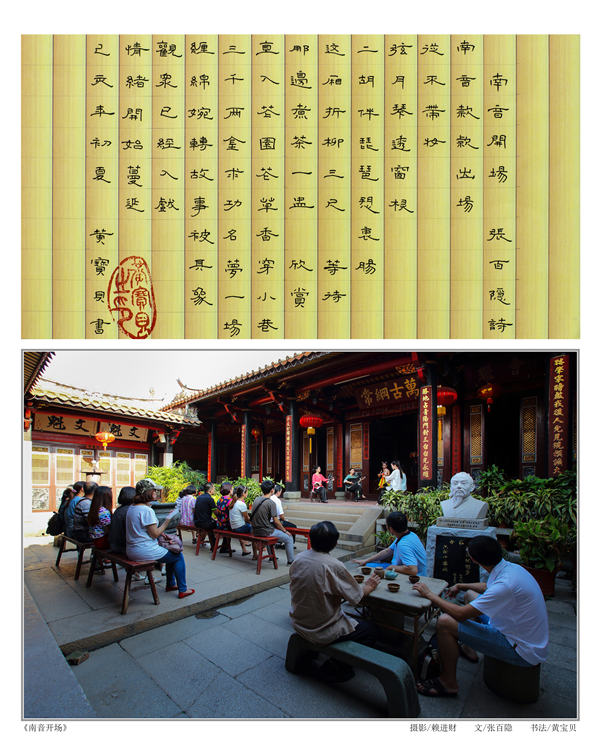 南音開場 張百隱詩
南音款款出場
從不帶妝
弦月琴透窗棂
二胡伴琵琶愬衷腸
這厢折柳三尺 等待
那邊煮茶一盅 欣賞
直入花園花草香穿小巷
三千兩金求功名夢一場
纏綿婉轉故事被具象
觀衆已經入戲
情緒開始蔓延
己亥年初夏 黄寶貝書
文魁
文魁
萬古綱常
《南音开场》
摄影/赖进财 文/张百隐 书法/黄宝贝